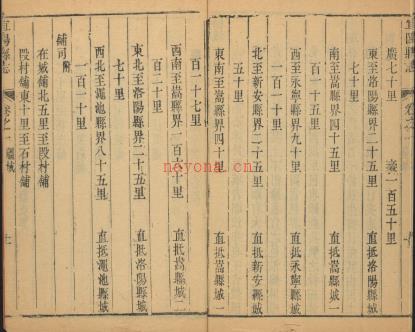 廣七十里　袤一百五十里
東至洛陽縣界二十五里　直抵洛陽縣城
七十里
南至嵩縣界四十五里　直抵嵩縣城一
百一十五里
西至永寧縣界九十里　直抵永寧縣城一
百二十里
北至新安縣界二十五里　直抵新安縣城
五十里
東南至嵩縣界四十里　直抵嵩縣城一
百一十七里
西南至嵩縣界一百六十里　直抵嵩縣城二
百二十里
東北至洛陽縣界二十五里　直抵洛陽縣城
七十里
西北至澠池縣界八十五里　直抵澠池縣城
一百一十里
舖司附
在城舖北五里至段村舖
段村舖東十里至石村舖
宜陽縣志
卷之一
疆域
neyona.cn